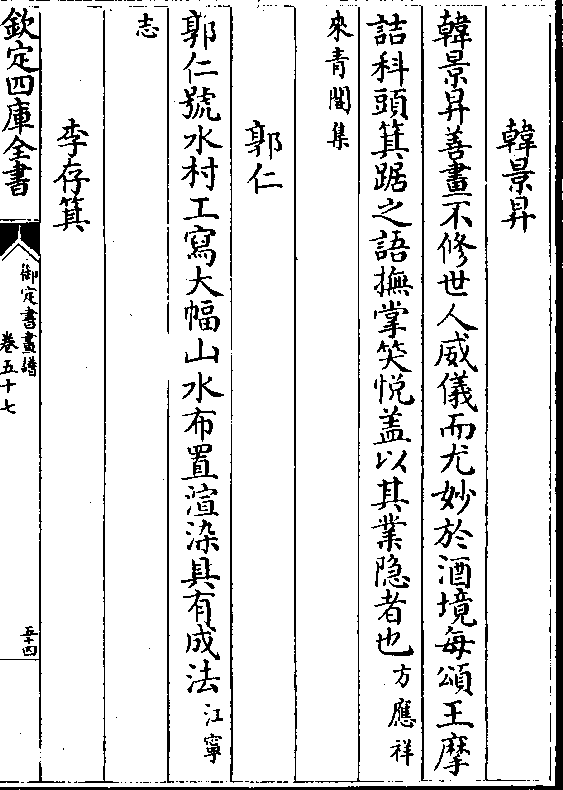 韓景昇
韓景昇善畫不修世人威儀而尤妙於酒境每頌王摩
詰科頭箕踞之語撫掌笑悦盖以其業隐者也方應祥
來青閣集
郭仁
郭仁號水村工寫大幅山水布置渲染具有成法江寧
志
李存箕
欽定四庫全書
御定書畫譜
卷五十七
五十四